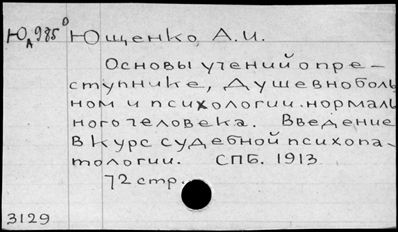 ЮД985° Ющенко, А.И.
Основы учений о пре-
ступнике, душевноболь
ном и психологии нормаль
ного человека. Введение
в курс судебной психопа-
тологии. СПБ. 1913
72 стр.
3129